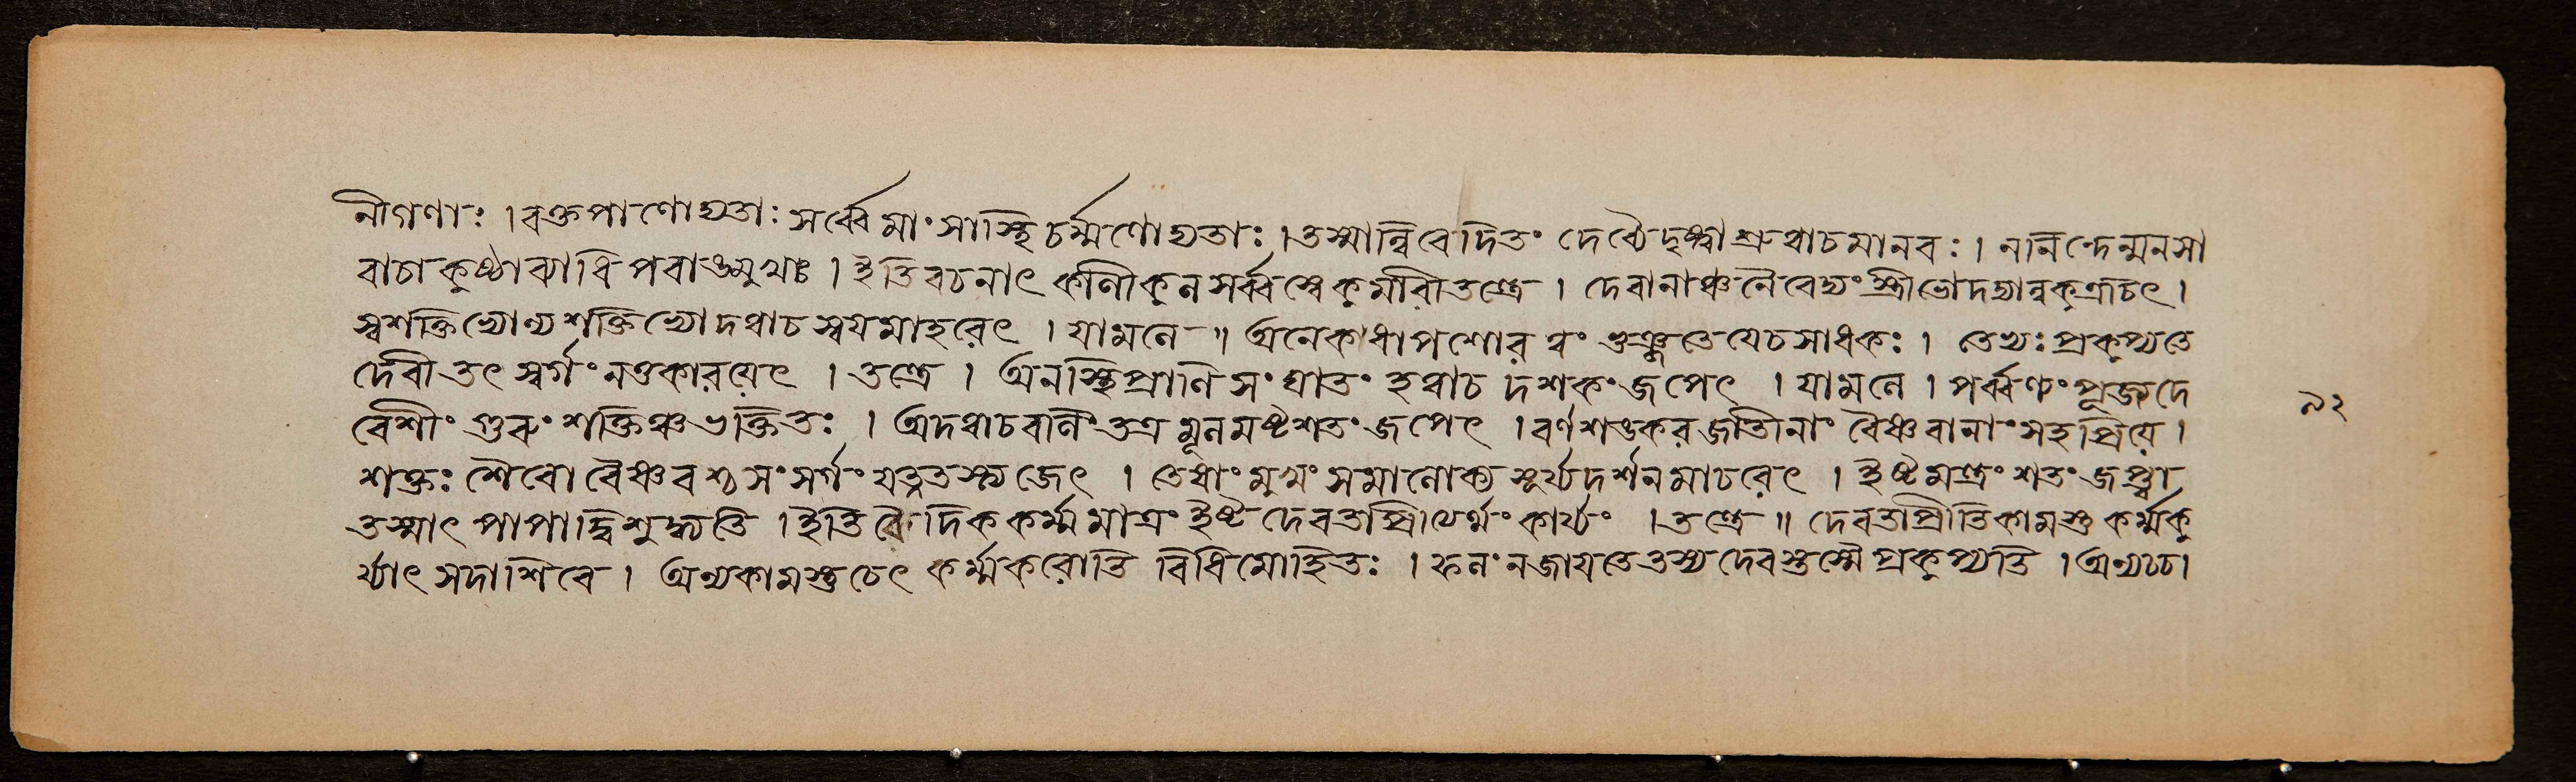 নীগণাঃ । রক্তপাণোদ্যতাঃ সর্ব্বে মাংসাস্থিচর্ম্মণোদ্যতাঃ । তস্মান্নিবেদিতং দেব্যৈ দৃষ্ট্বা শ্রুত্বাচমানবঃ । ননিন্দেন্মনসা
বাচা কুষ্ঠাব্যাধি পরাঙমুখাঃ । ইতি বচনাৎ কালীকুলসর্ব্বস্বে কুমারীতন্ত্রে । দেবানাঞ্চনৈবেদ্যং স্ত্রীভ্যোদদ্যান্নকুত্রচিৎ ।
স্বশক্তিভ্যোন্যশক্তিভ্যোদত্বাচ স্বয়মাহরেৎ । যামলে ॥ অনেকধাপশোরন্নং ভুঞ্জতে যেচসাধকঃ । তেভ্যঃ প্রকুপ্যতে
দেবী তৎ স্বর্গং নতকারয়েৎ । তন্ত্রে । অনস্থিপ্রাণি সংঘাতং হত্বাচ দশকং জপেৎ । যামলে । পর্ব্বণং পূজ্যদে
বেশীং গুরুং শক্তিঞ্চ ভক্তিতঃ । অদত্বাচবলিং তত্র মূলমষ্টশতং জপেৎ । বর্ণশঙকরজাতীনাং বৈষ্ণবানাং সহপ্রিয়ে ।
শাক্তঃ শৈবো বৈষ্ণবশ্চ সংসর্গং যত্নতস্ত্যজেৎ । তেষাং মুখং সমালোক্য সূর্য্যদর্শনমাচরেৎ । ইষ্টমন্ত্রং শতং জপ্ত্বা
তস্মাৎ পাপাদ্বিশুদ্ধ্যতি । ইতি বৈদিককর্ম্মমাত্রং ইষ্টদেবতাপ্রীত্যর্থং কার্য্যং । তন্ত্রে ॥ দেবতাপ্রীতিকামস্তু কর্ম্মকু
র্য্যাৎ সদাশিবে । অন্যকামস্তুচেৎ কর্ম্মকরোতি বিধিমোহিতঃ । ফলং নজায়তে তস্য দেবস্তস্মৈ প্রকুপ্যতি । অন্যচ্চ ।
৯২